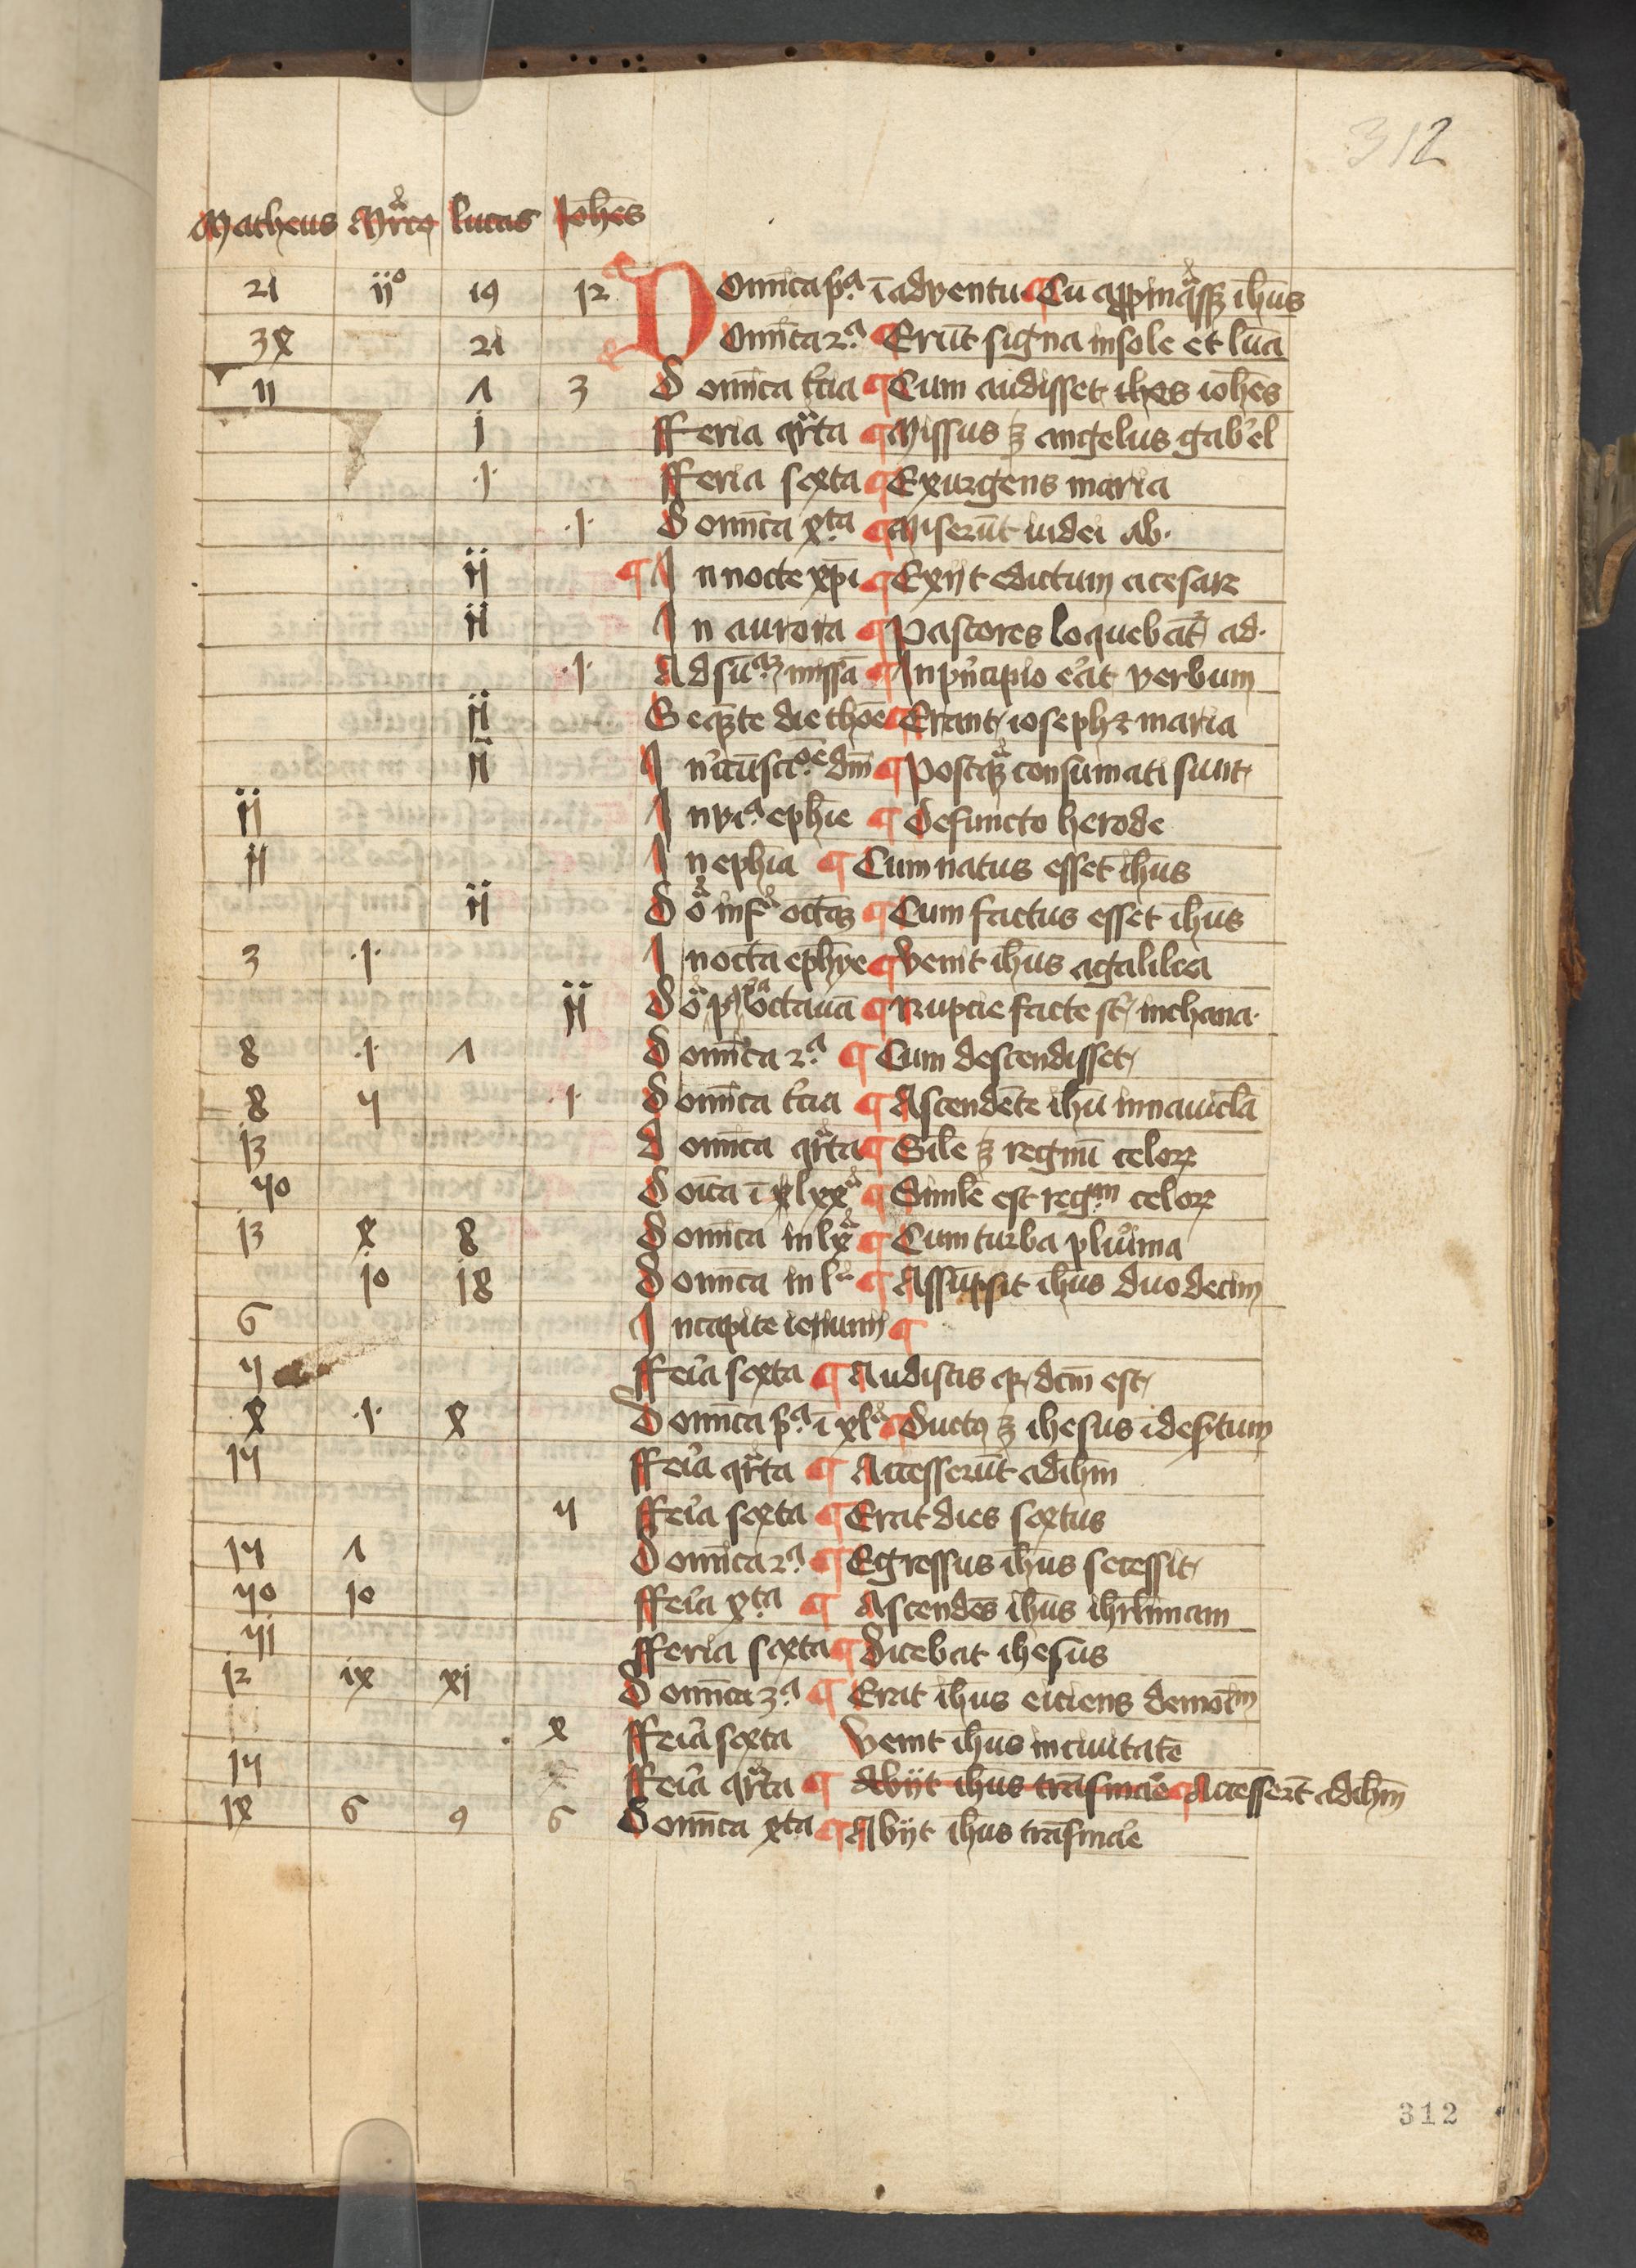 312
Matheus Marcꝰ lucas Ioh̄es
21 ij° 19 12 Domīca pͥᵃ ī adventu Cū appinq̄ssȝ ih̄us
3X 21 Domīca 2ᵃ Erūt signa in sole et lūa
11 Λ 3 Domīca t̄cia Cum audisset ihes ioh̄es
j Fferia qr̄ta Missus ȝ angelus gab̓el
·j· Fferia sexta Exurgens maria
·j· Domīca xᵗᵃ Miserūt iudei ab·
ij In nocte xp̄i Exijt edictum a cesare
ij In aurora Pastores loquebāt᷑ ad·
·j· Ad sūᵃȝ missā In pͥncipio e̓at verbum
ij Seqȝte die thōe Erant ioseph ⁊ maria
ij In c̓cūsciᵒē dn̄i Postqȝ consumati sunt
ij In viᵃ eph̄ie Defuncto herode
ij In eph̄ia Cum natus esset ih̄us
ij Dō infᵃ octāȝ Cum factus esset ih̄us
3 ·j· In octā eph̄ye Venit ih̄us a galilea
ij Dō pᵃ octauā Nupcie facte st̄ in chana·
8 ·j· Λ Domīca 2ᵃ Cum descendisset
8 4 ·j· Domīca t̄cia Ascendēte ih̄u in nauiclā
13 Domīca qr̄ta Sīle ȝ regnū celoꝝ
40 Doīca ī xlxxᵃ Simlē est regᵐ celoꝝ
13 X 8 Domīca in lxᵃ Cum turba plu̓ima
10 18 Domīca in lᵃ Assūpsit ih̄us duodecim
6 In capite ieiunij
4 Ffei̓a sexta Audistis qꝛ dc̄m est
X ·j· X Domīca pͥᵃ ī xlᵃ Ductꝰ ȝ ihesus ī des̓tum
14 Ffei̓a qr̄ta Accesserūt ad ih̄m
4 Ffei̓a sexta Erat dies sextus
14 Λ Domīca 2ᵃ Egressus ih̄us secessit
40 10 Ffei̓a xᵗᵃ Ascendēs ih̄us ihr̄limam
41 Fferia sexta Dicebat ihesus
12 ix xj Domīca 3ᵃ Erat ih̄us eiciens demōīᵐ
X Ffei̓a sexta Venit ih̄us in ciuitatē
14 Ffei̓a qr̄ta Abijt ih̄us trāsmare Accesser̄t ad ih̄m
1X 6 9 6 Domīca xᵗᵃ Abijt ih̄us trāsma̓e
312